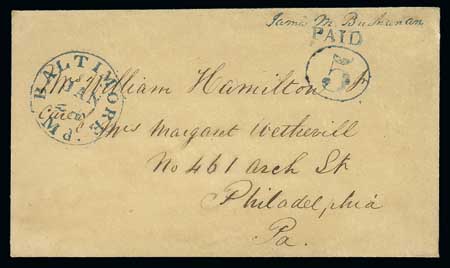 James M. Buchanan
PAID
5
BALTIMORE Md.
JAN
William Hamilton Jr
Mrs Margaret Wetherill
No 461 Arch St
Philadelphia
Pa.